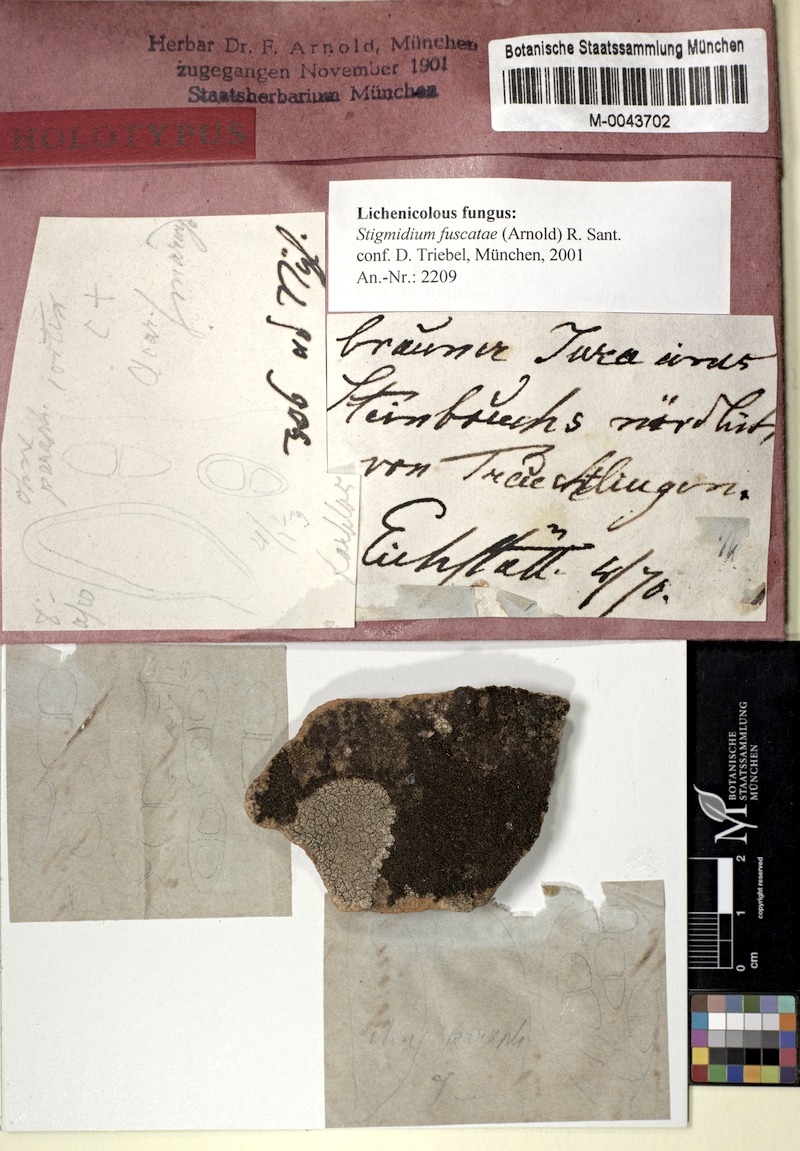 Herbar Dr. F. Arnold, München
zugegangen November 1901
Staatsherbarium München
Botanische Staatssammlung München
M-0043702
HOLOTYPUS
Lichenicolous fungus:
Stigmidium fuscatae (Arnold) R. Sant.
conf. D. Triebel, München, 2001
An.-Nr.: 2209
brauner Jura eines
Steinbruchs nördlich
von Treuchtlingen.
Eichstätt. 4/70.
c +
ohne
paraph.
ohne paraph.
BOTANISCHE
STAATSSAMMLUNG
MÜNCHEN
copyright reserved
0 1 2
cm